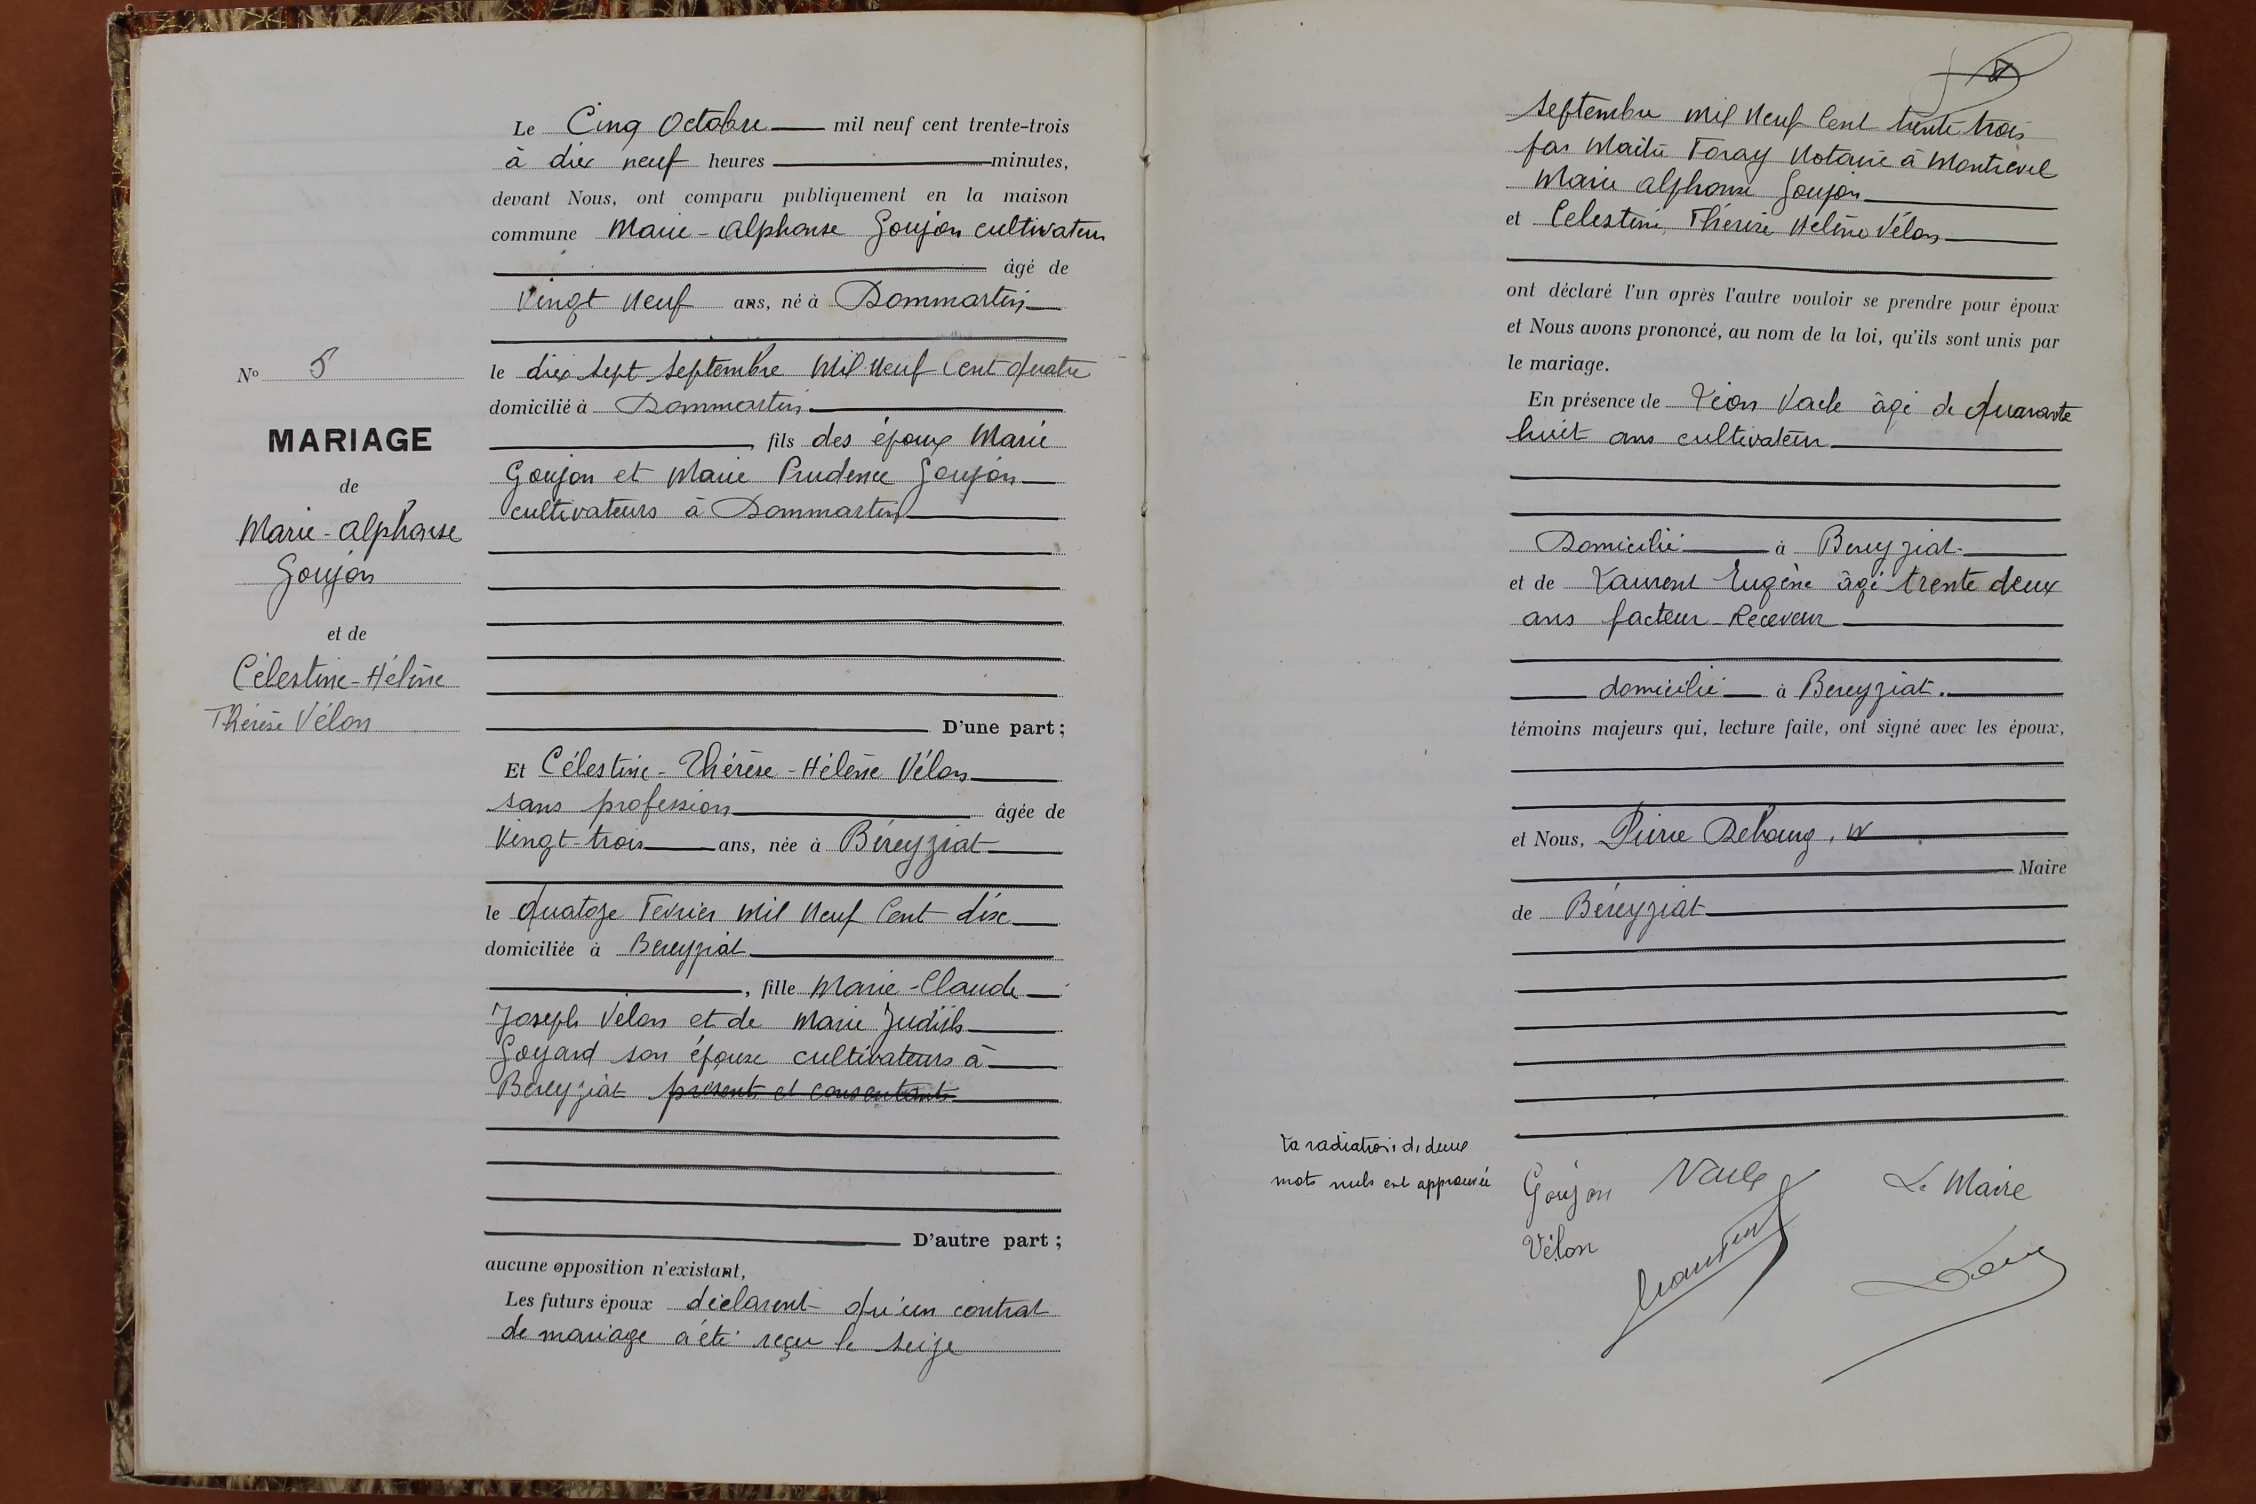 Le Cinq Octobre mil neuf cent trente-trois
à dix neuf heures minutes,
devant Nous, ont comparu publiquement en la maison
commune Marie-Alphonse Goujon cultivateur
âgé de
Vingt Neuf ans, né à Dommartin
le dix sept septembre Mil Neuf Cent quatre
domicilié à Dommartin
, fils des époux Marie
Goujon et Marie Prudence Goujon
cultivateurs à Dommartin
D'une part ;
Et Célestine-Thérèse-Hélène Vélon
sans profession âgée de
Vingt-trois ans, née à Béreyziat
le quatoze Fevrier Mil Neuf Cent dix
domiciliée à Bereyziat
, fille Marie-Claude
Joseph Vélon et de Marie Judith
Goyard son épouse cultivateurs à
Bereyziat présents et consentants
D'autre part ;
aucune opposition n'existant,
Les futurs époux déclarent qu'un contrat
de mariage a été reçu le seize
No 5
MARIAGE
de
Marie-Alphonse
Goujon
et de
Célestine-Hélène
Thérèse Vélon
septembre mil Neuf Cent trente trois
par Maitre Foray Notaire à Montrevel
Marie Alphonse Goujon
et Celestine, Thérèse Hélène Vélon
ont déclaré l'un après l'autre vouloir se prendre pour époux
et Nous avons prononcé, au nom de la loi, qu'ils sont unis par
le mariage.
En présence de Léon Vacle âgé de quarante
huit ans cultivateur
Domicilié à Bereyziat
et de Laurent Eugène âgé trente deux
ans facteur-Receveur
domicilié à Bereyziat.
témoins majeurs qui, lecture faite, ont signé avec les époux,
et Nous, Pierre Debourg,
Maire
de Béreyziat
La radiation de deux
mots nuls est approuvée
Goujon Vacle Le Maire
Vélon